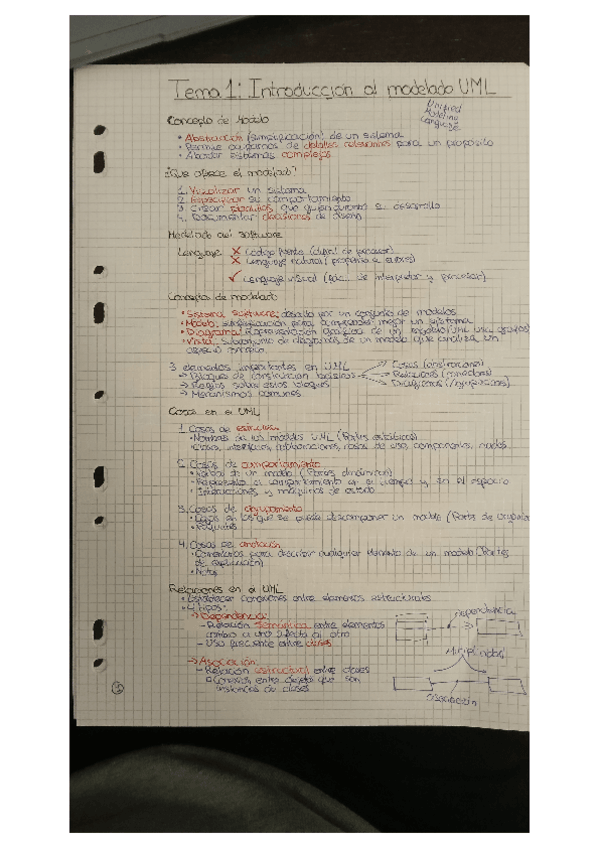 Tema 1: Introducción al modelado UML
Unified
Modeling
Language
Concepto de Modelo
• Abstracción (simplificación) de un sistema
• Permite ocuparnos de detalles relevantes para un propósito
• Abordar sistemas complejos
¿Que ofrece el modelado?
1. Visualizar un sistema
2. Especificar su comportamiento
3. Crear plantillas que guían durante el desarrollo
4. Documentar decisiones de diseño
Modelado del software
Lenguaje X Código fuente (difícil de procesar)
X Lenguaje natural (propenso a errores)
✓ Lenguaje visual (fácil de interpretar y procesar)
Concepto de modelado
• Sistema software: descrito por un conjunto de modelos
• Modelo: simplificación para comprender mejor un sistema
• Diagrama: Representación gráfica de un modelo UML
• Vista: Subconjunto de diagramas de un modelo que analiza un
3 elementos importantes en UML
→ Bloques de construcción básicos → Cosas (abstracciones)
→ Relaciones (conectores)
→ Diagramas (agrupaciones)
→ Reglas sobre estos bloques
→ Mecanismos comunes
Cosas en el UML
1. Cosas de estructura
• Nombres de los modelos UML (Partes estáticas)
• Clases, interfaces, colaboraciones, casos de uso, componentes, nodos
2. Cosas de comportamiento
• Verbos de un modelo (Partes dinámicas)
• Representa el comportamiento en el tiempo y en el espacio
• Interacciones y máquinas de estado
3. Cosas de agrupamiento
• Cajas en las que se puede descomponer un modelo (Partes de
• Paquetes
4. Cosas de anotación
• Comentarios para describir cualquier elemento de un modelo (Partes
de explicación)
• Notas
Relaciones en el UML
• Establecer conexiones entre elementos estructurales
• 4 tipos:
→ Dependencia:
- Relación semántica entre elementos
cambio a uno afecta al otro
- Uso frecuente entre clases
dependencia
→ Asociación:
- Relación estructural entre clases
Conexión entre objetos que son
instancias de clases
asociación
1